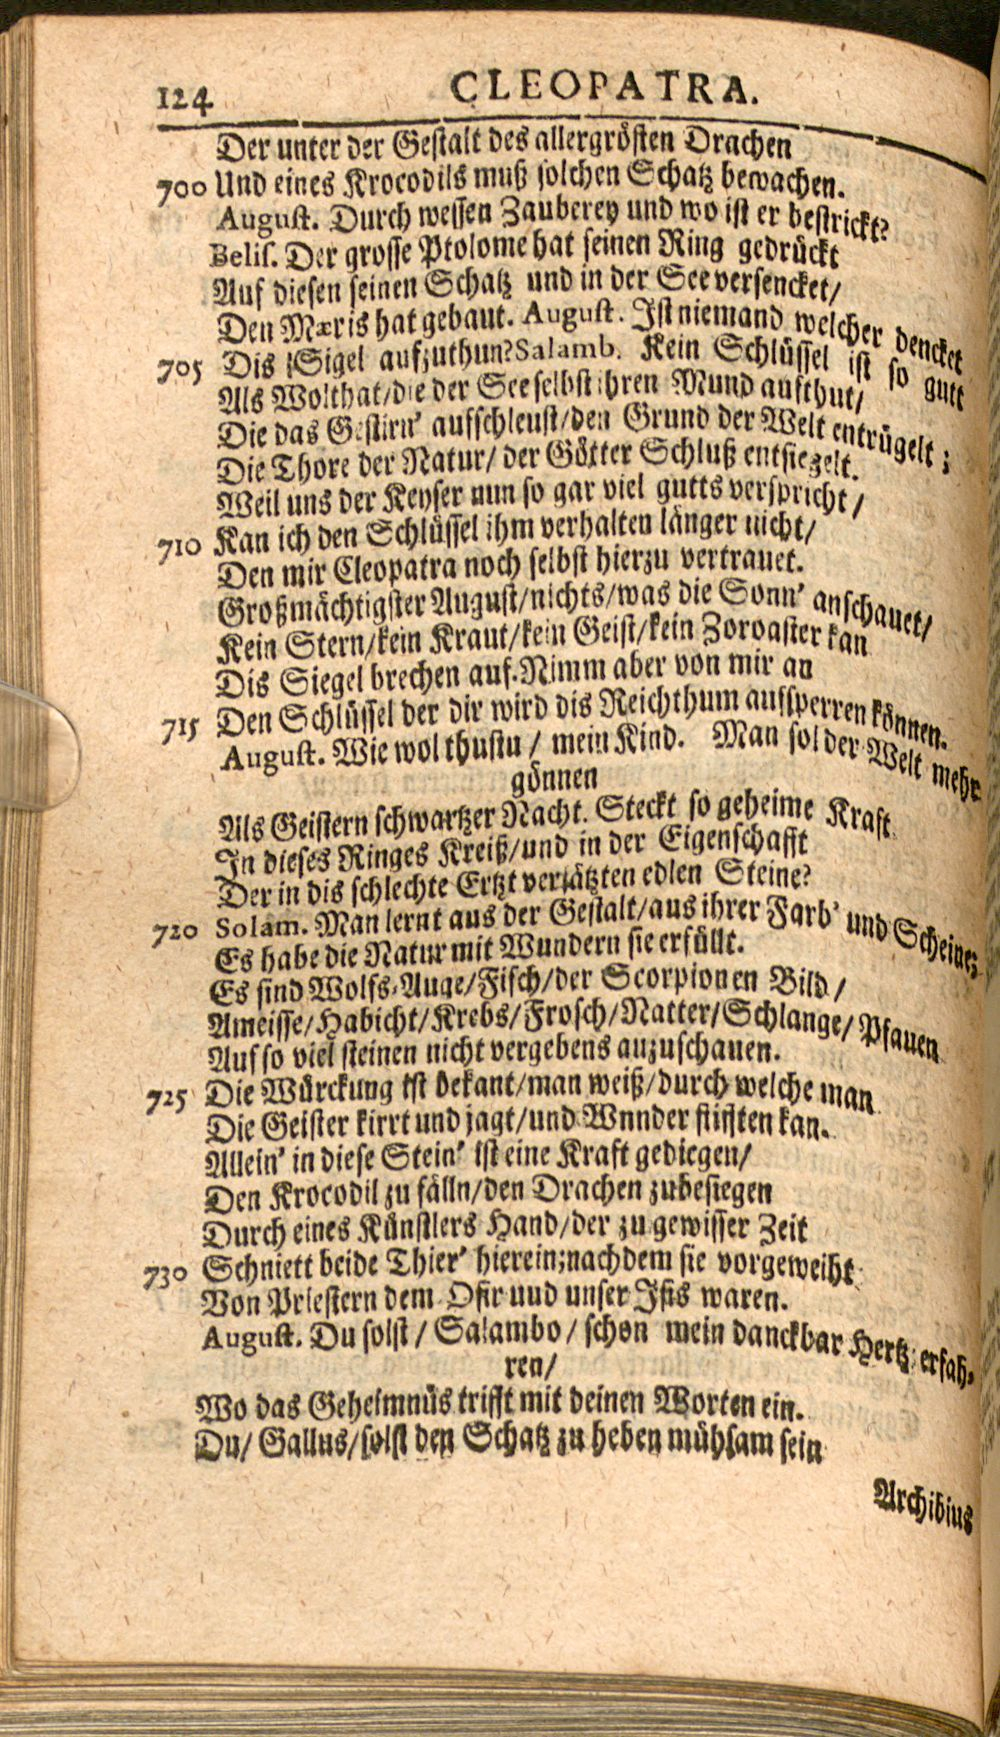 124 CLEOPATRA.
Der unter der Gestalt des allergrösten Drachen
700 Und eines Krocodils muß solchen Schatz bewachen.
August. Durch wessen Zauberey und wo ist er bestrickt?
Belis. Der grosse Ptolome hat seinen Ring gedrückt
Auf diesen seinen Schatz und in der See versencket/
Den Mæris hat gebaut. August. Ist niemand welcher dencket
705 Dis Sigel aufzuthun? Salamb. Kein Schlüssel ist so gutt
Als Wolthat/die der See selbst ihren Mund aufthut/
Die das Gestirn' aufschleust/den Grund der Welt entrügelt;
Die Thore der Natur/ der Götter Schluß entsiegelt.
Weil uns der Keyser nun so gar viel gutts verspricht/
710 Kan ich den Schlüssel ihm verhalten länger nicht/
Den mir Cleopatra noch selbst hierzu vertrauet.
Großmächtigster August/nichts/was die Sonn' anschauet/
Kein Stern/kein Kraut/kein Geist/kein Zoroaster kan
Dis Siegel brechen auf. Nimm aber von mir an
715 Den Schlüssel der dir wird dis Reichthum aufsperren können.
August. Wie wol thustu / mein Kind. Man sol der Welt mehr
gönnen
Als Geistern schwartzer Nacht. Steckt so geheime Kraft
In dieses Ringes Kreiß/und in der Eigenschafft
Der in dis schlechte Ertzt versätzten edlen Steine?
720 Solam. Man lernt aus der Gestalt/aus ihrer Farb' und Scheine;
Es habe die Natur mit Wundern sie erfüllt.
Es sind Wolfs-Auge/Fisch/der Scorpionen Bild/
Ameisse/Habicht/Krebs/Frosch/Natter/Schlange/Pfauen
Auf so viel steinen nicht vergebens anzuschauen.
725 Die Würckung ist bekant/man weiß/durch welche man
Die Geister kirrt und jagt/und Wnnder stifften kan.
Allein' in diese Stein' ist eine Kraft gediegen/
Den Krocodil zu fälln/den Drachen zubesiegen
Durch eines Künstlers Hand/der zu gewisser Zeit
730 Schniett beide Thier' hierein; nachdem sie vorgeweiht
Von Priestern dem Osir uud unser Isis waren.
August. Du solst / Salambo / schon mein danckbar Hertz erfah-
ren/
Wo das Geheimnüs trifft mit deinen Worten ein.
Du/ Gallus/solst den Schatz zu heben mühsam sein
Archibius